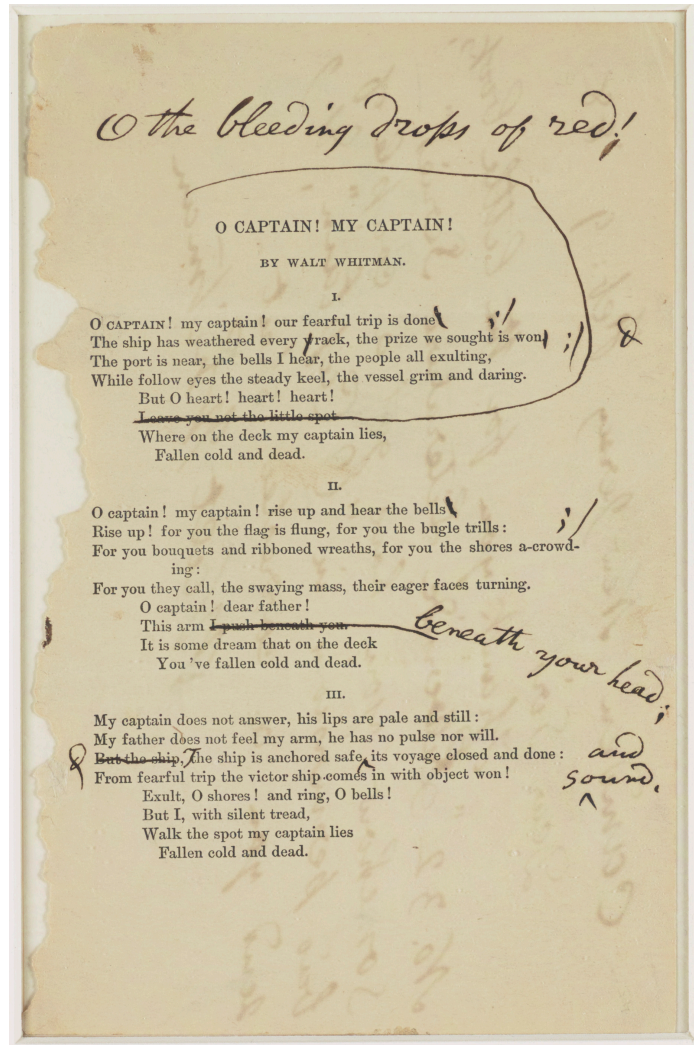 O the bleeding drops of red!
O CAPTAIN! MY CAPTAIN!
BY WALT WHITMAN.
I.
O CAPTAIN! my captain! our fearful trip is done ;/
The ship has weathered every rack, the prize we sought is won, ;/
The port is near, the bells I hear, the people all exulting,
While follow eyes the steady keel, the vessel grim and daring.
But O heart! heart! heart!
Leave you not the little spot
Where on the deck my captain lies,
Fallen cold and dead.
II.
O captain! my captain! rise up and hear the bells ;/
Rise up! for you the flag is flung, for you the bugle trills:
For you bouquets and ribboned wreaths, for you the shores a-crowd-
ing:
For you they call, the swaying mass, their eager faces turning.
O captain! dear father!
This arm I push beneath you. beneath your head;
It is some dream that on the deck
You 've fallen cold and dead.
III.
My captain does not answer, his lips are pale and still:
My father does not feel my arm, he has no pulse nor will.
But the ship, The ship is anchored safe, its voyage closed and done: and
From fearful trip the victor ship comes in with object won! sound,
Exult, O shores! and ring, O bells!
But I, with silent tread,
Walk the spot my captain lies
Fallen cold and dead.